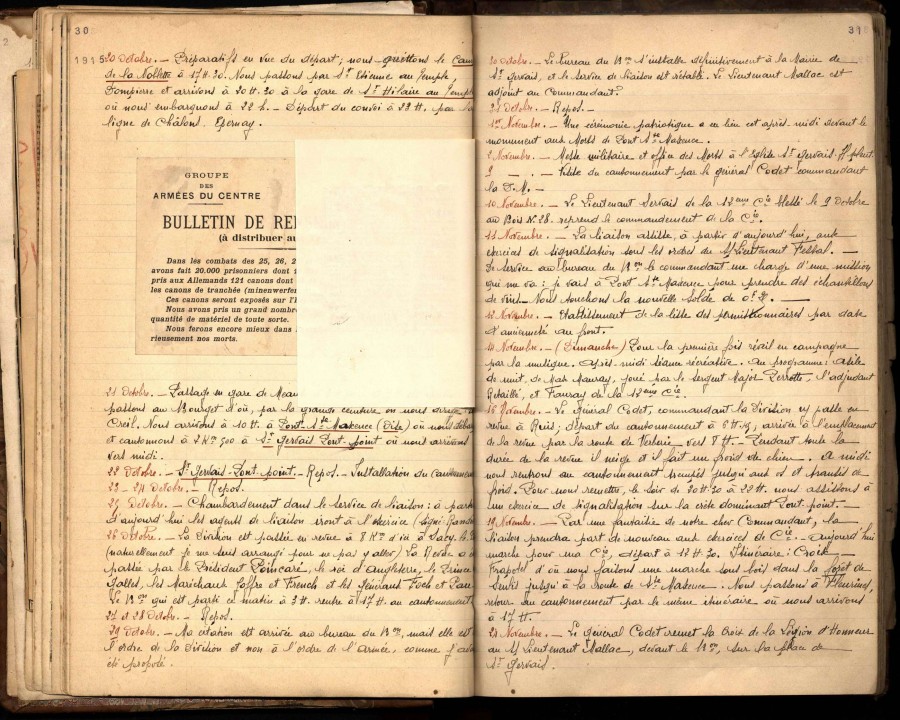 30
1915 20 Octobre. — Préparatifs en vue du départ; nous quittons le Cam
de la Noblette à 17 H. 30. Nous passons par St Etienne au Temple,
Dompierre et arrivons à 20 H. 30 à la gare de St Hilaire au Temple
où nous embarquons à 22 h. — Départ du convoi à 22 H. par la
ligne de Châlons. Epernay.
GROUPE
DES
ARMÉES DU CENTRE
BULLETIN DE RE
(à distribuer au
Dans les combats des 25, 26, 2
avons fait 20.000 prisonniers dont
pris aux Allemands 121 canons dont
les canons de tranchée (minenwerfer
Ces canons seront exposés sur l'
Nous avons pris un grand nombre
quantité de matériel de toute sorte.
Nous ferons encore mieux dans
rieusement nos morts.
21 Octobre. — Passage en gare de Meau
passons au Bourget d'où, par la grande ceinture on nous dirige
Creil. Nous arrivons à 10 H. à Pont Ste Maxence (Oise) où nous débar
et cantonnons à 2 Km 500 à St Gervais Pont point où nous arrivons
vers midi.
22 Octobre. — St Gervais Pont point. — Repos. — Installation du cantonnement
23 - 24 Octobre. — Repos.
25 Octobre. — Chambardement dans le service de liaison: à partir
d'aujourd'hui les agents de liaison iront à l'exercice
26 Octobre. — La Division est passée en revue à 8 Km d'ici à Sacy
(naturellement je me suis arrangé pour ne pas y aller) La Revue a é
passée par le Président Poincaré, le roi d'Angleterre, le Prince
Galles, les Maréchaux Joffre et French et les généraux Foch et
Le Bon qui est parti ce matin à 3 H. rentre à 17 H. au cantonnement
27 et 28 Octobre. — Repos.
29 Octobre. — Ma citation est arrivée au bureau du Bon, mais elle est
l'ordre de la Division et non à l'ordre de l'Armée, comme j'av
été proposé.
31
30 Octobre. — Le bureau du Bon s'installe définitivement à la Mairie de
St Gervais, et le service de liaison est rétabli. Le Lieutenant Mallac est
adjoint au Commandant.
31 Octobre. — Repos. —
1er Novembre. — Une cérémonie patriotique a eu lieu cet après midi devant le
monument aux Morts de Pont Ste Maxence.
2 Novembre. — Messe militaire et office des Morts à l'Eglise St Gervais. Il pleut.
9 — . — Visite du cantonnement par le général Codet commandant
la D.M. —
10 Novembre. — Le Lieutenant Servais de la 12ème Cie blessé le 9 Octobre
au Bois N. 28. reprend le commandement de la Cie.
11 Novembre. — La liaison assiste, à partir d'aujourd'hui, aux
exercices de signalisation sous les ordres du S/Lieutenant Fessal. —
De service au bureau du Bon le commandant me charge d'une mission
qui me va: je vais à Pont Ste Maxence pour prendre des échantillons
de vins. — Nous touchons la nouvelle solde de
12 Novembre. — Etablissement de la liste des permissionnaires par date
d'ancienneté au front.
14 Novembre. — (Dimanche) Pour la première fois réveil en campagne
par la musique. Après-midi séance récréative. Au programme: asile
de nuit, de Max Mauray, joué par le sergent Major Perrotte, l'adjudant
Retaillé, et Fauray de la 12ème Cie.
16 Novembre. — Le général Codet, commandant la Division va passer en
revue à Ruis; départ du cantonnement à 6 H. 15, arrivée à l'emplacement
de la revue par la route de Verberie vers 8 H. — Pendant toute la
durée de la revue il neige et il fait un froid de chien. — A midi
nous rentrons au cantonnement trempés jusqu'aux os et transis de
froid. Pour nous remettre, le soir de 20 H. 30 à 22 H. nous assistons à
un exercice de signalisation sur la crête dominant Pont point. —
19 Novembre. — Par une fantaisie de notre cher Commandant, la
liaison prendra part de nouveau aux exercices de Cie. — Aujourd'hui
marche pour ma Cie, départ à 12 H. 30. Itinéraire: Croix
Frapotel d'où nous faisons une marche sous bois dans la forêt de
Senlis jusqu'à la route de Ste Maxence. — Nous passons à Fleurines,
retour au cantonnement par le même itinéraire où nous arrivons
à 17 H. —
21 Novembre. — Le général Codet remet la Croix de la Légion d'Honneur
au S/Lieutenant Mallac, devant le Bon, sur la place de
St Gervais.